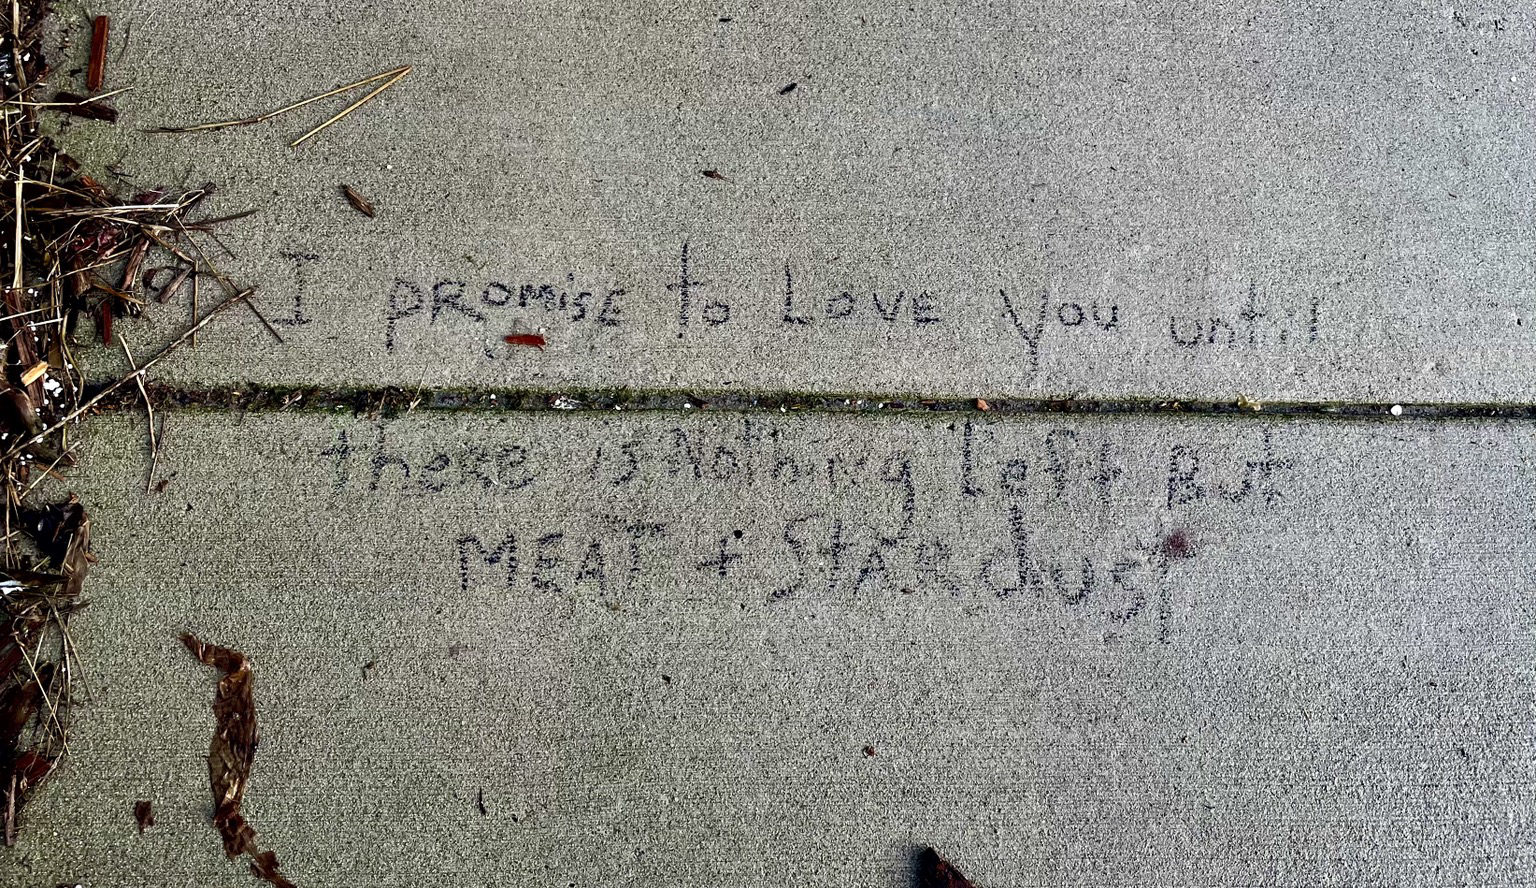 I PROMiSE to LOVE You until
theRe is Nothing Left But
MEAT + StARdust